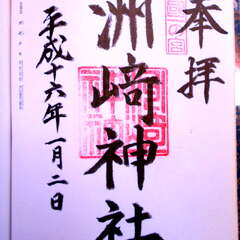 奉拝
洲﨑神社
平成十六年一月二日